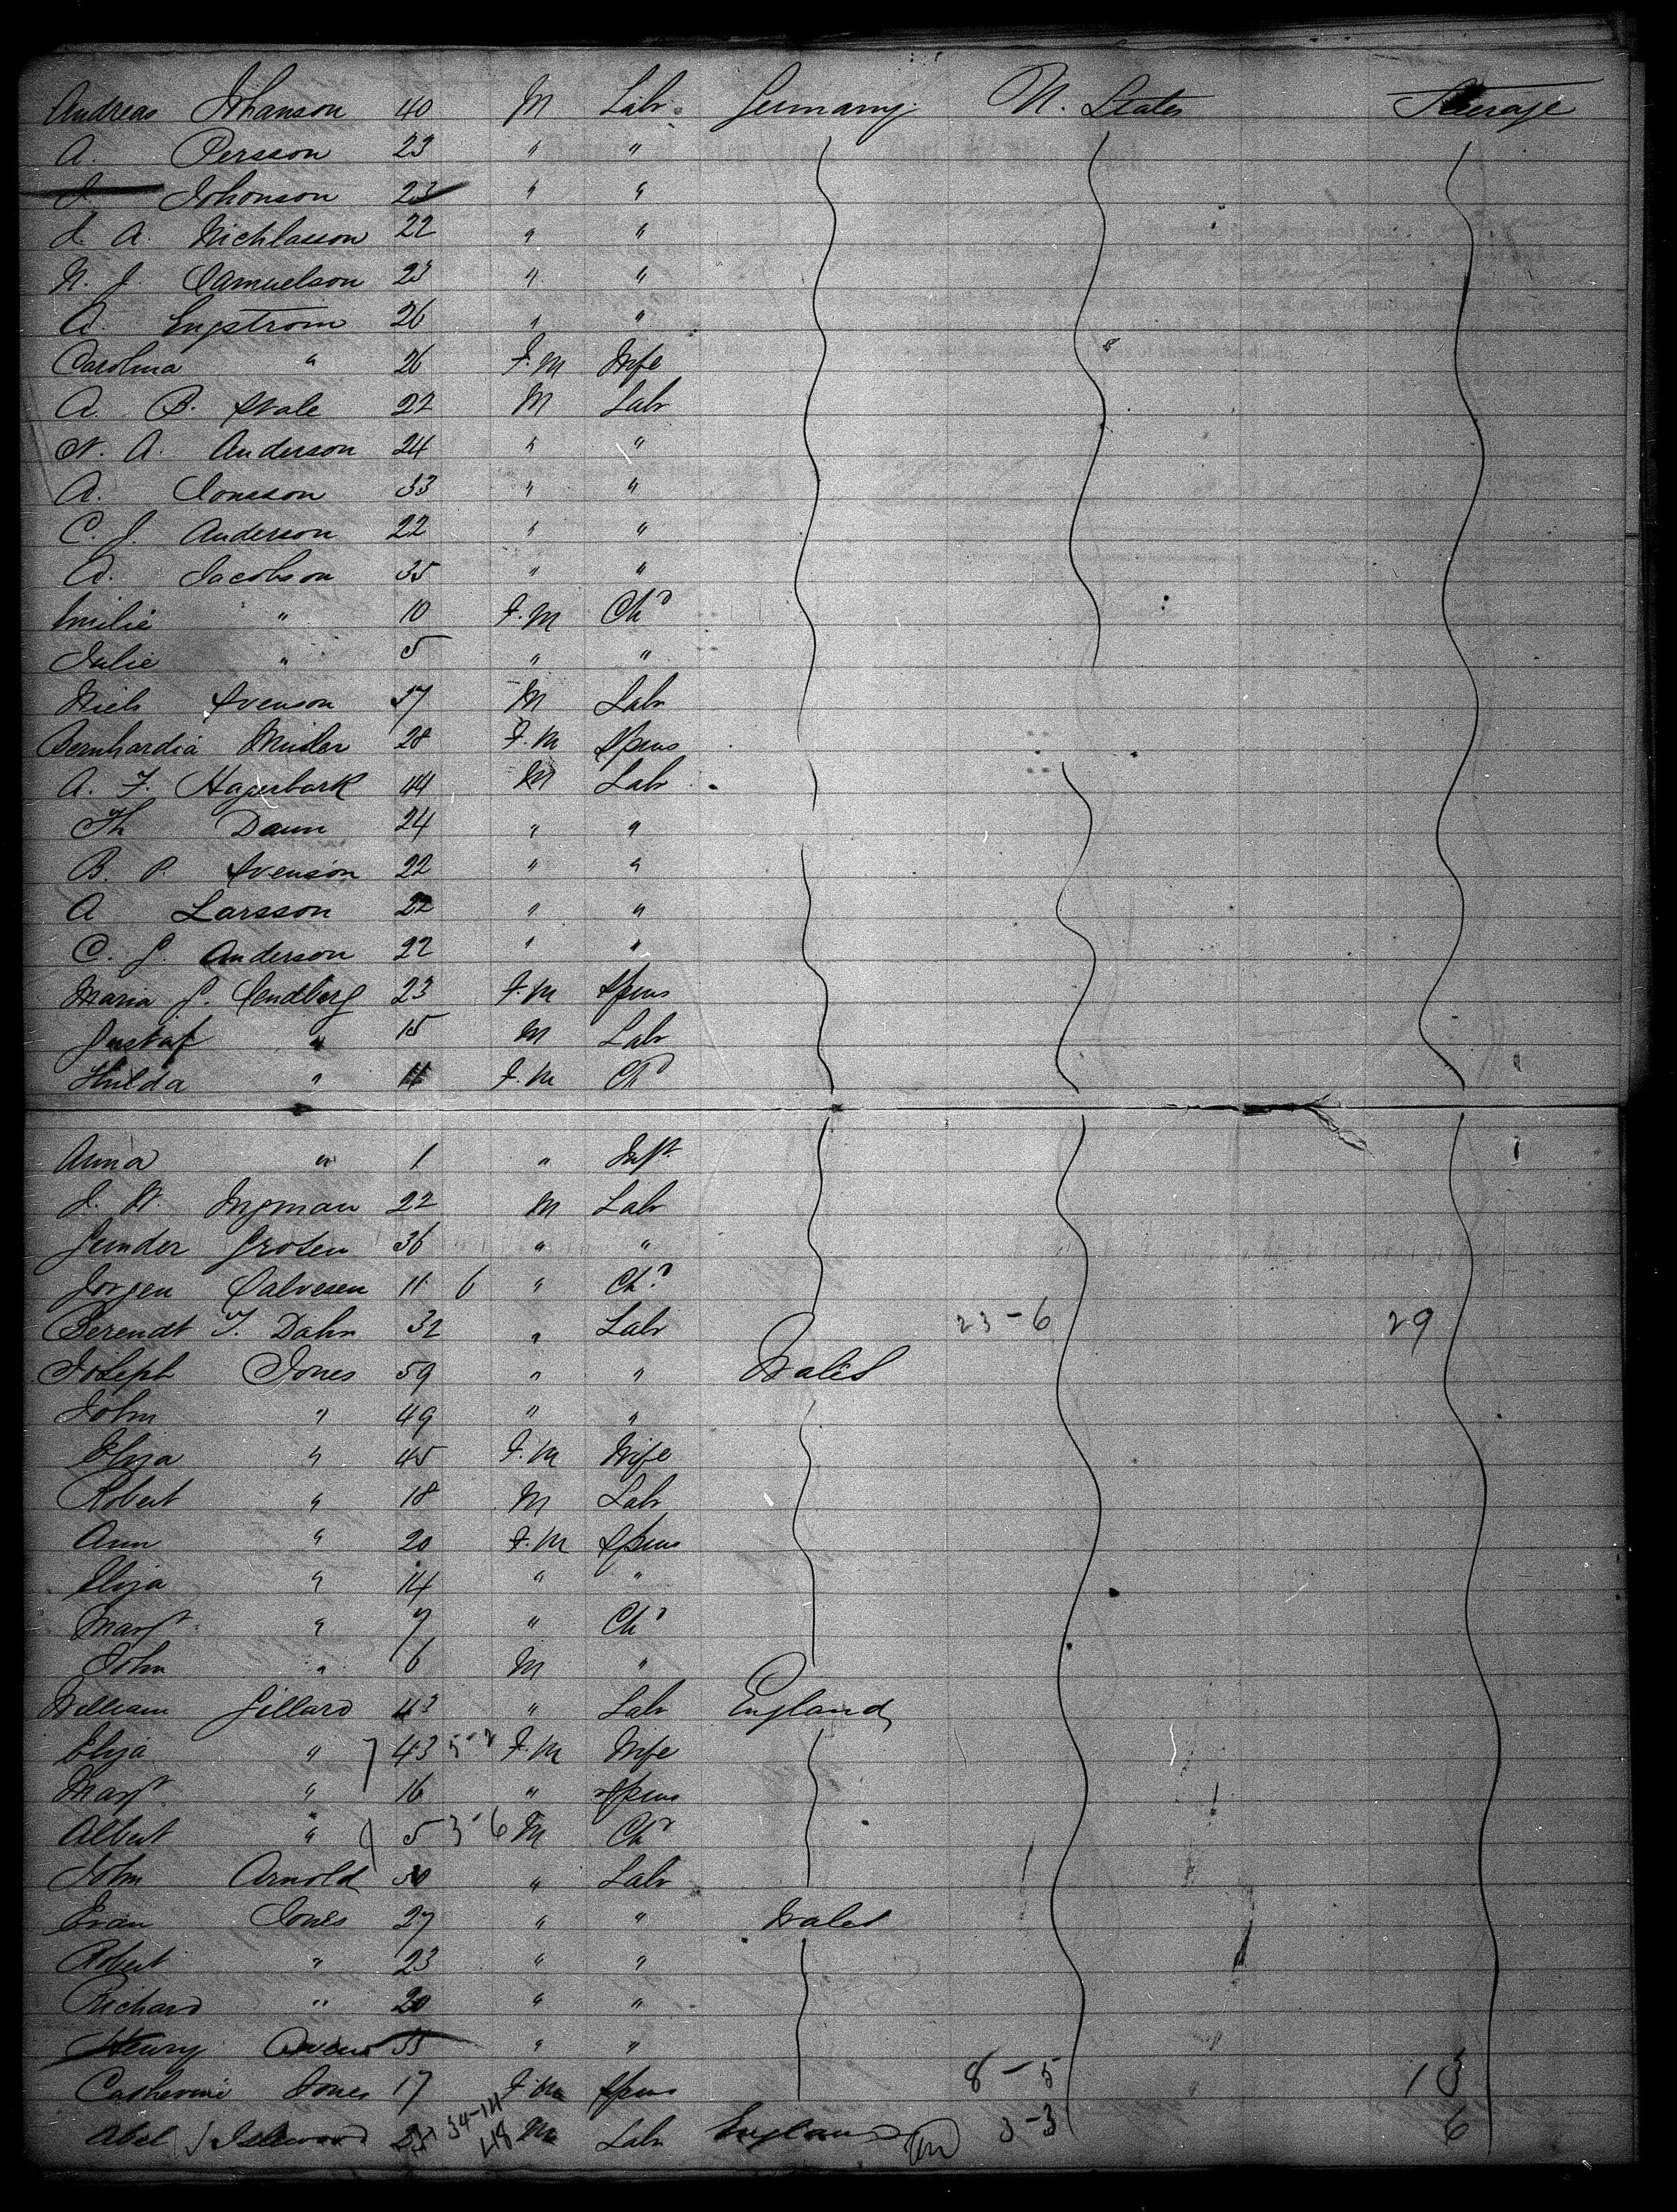 Andreas Johanson 40 M Labr. Germany. U. States Steerage
A. Persson 23 " "
J. Johonson 23 " "
J. A. Nichlasson 22 " "
N. J. Samuelson 23 " "
A. Engstrom 26 " "
Carolina " 26 F.M Wife
A. B. Svale 22 M Labr
N. A. Anderson 24 " "
A. Jonsson 33 " "
C. J. Anderson 22 " "
A. Jacobson 35 " "
Emilie " 10 F.M Chd
Julie " 5 " "
Niels Svenson 57 M Labr
Bernhardia 28 F.M Spins
A. F. Hagerbark 44 M Labr
Th Daun 24 " "
B. P. Svenson 22 " "
A Larsson 22 " "
C. J. Anderson 22 " "
Maria J. Sendberg 23 F.M Spins
Gustaf " 15 M Labr
Hulda " 11 F.M Chd
Anna " 1 " Inft.
J. W. Ingman 22 M Labr
Gunder 36 " "
Jorgen Salvesen 11 6 " Chd
Berendt T. Dahn 32 " Labr 23-6 29
Joseph Jones 59 " " Wales
John " 49 " "
Eliza " 45 F.M Wife
Robert " 18 M Labr
Ann " 20 F.M Spins
Eliza " 14 " "
Margt " 7 " Chd
John " 6 M "
William Gillard 43 " Labr England
Eliza " 43 5-2 F.M Wife
Margt. " 16 " Spins
Albert " 5 3-6 M Chd
John Arnold 50 " Labr
Evan Jones 27 " " Wales
Robert " 23 " "
Richard " 20 " "
Henry 35 " "
Catherine Jones 17 F.M Spins 8-5 13
Abel J 23 34-14 48 M Labr England 3-3 6